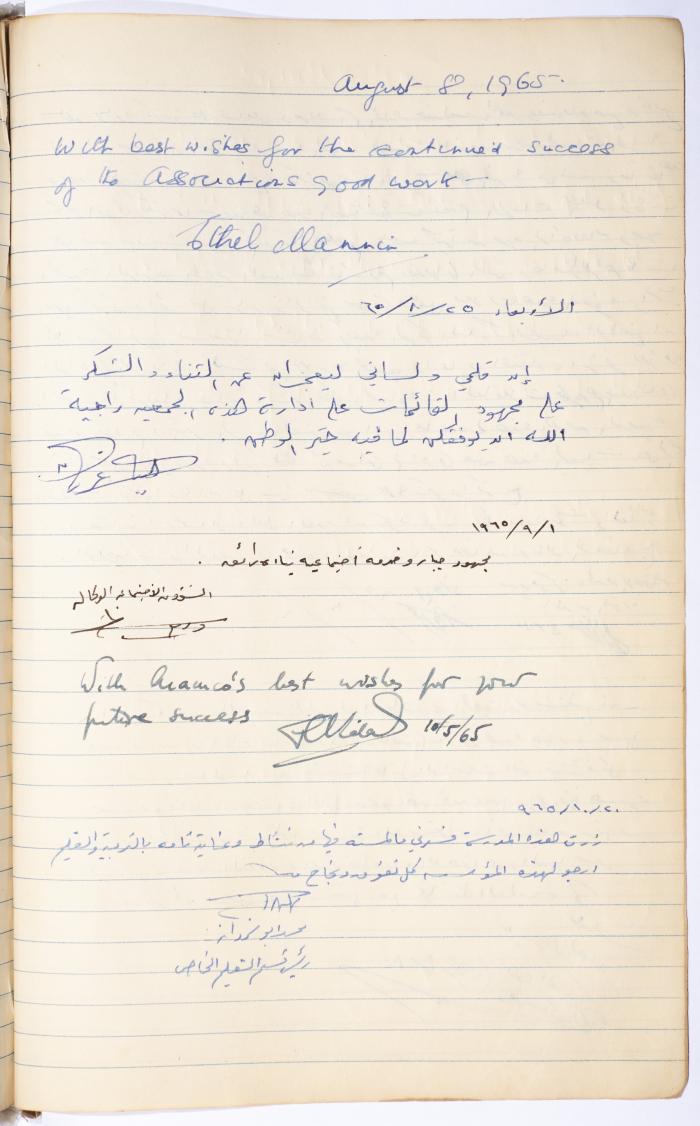 August 8, 1965.
With best wishes for the continued success
of the Associations good work —
Ethel Mannin
الأربعاء ٢٥/٨/٦٥
إن قلمي ولساني ليعجزان عن الثناء والشكر
على مجهود القائمات على ادارة هذه الجمعيه راجية
الله أن يوفقكن لما فيه خير الوطن .
١٩٦٥/٩/١
مجهود جبار وخدمه اجتماعيه بناءه رائعه .
الشؤون الاجتماعيه الوكاله
With Aramco's best wishes for your
future success
10/5/65
٩٦٥/١٠/٢٠
زرت هذه المدرسة فسرني ما لمسته فيها من نشاط وعناية تامه بالتربية والتعليم
ارجو لهذه المؤسسه كل تقدم ونجاح
محمد ابو
رئيس قسم التعليم الخاص